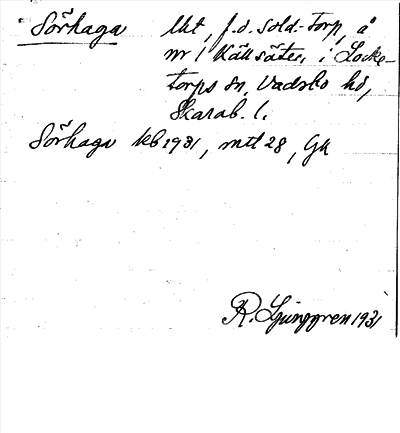 Sörhaga lht, f.d. sold.torp, å
nr 1 Källsäter, i Locke-
torps sn, Vadsbo hd,
Skarab. l.
Sörhaga kb 1931, mtl 28, Gk
R. Ljunggren 1931